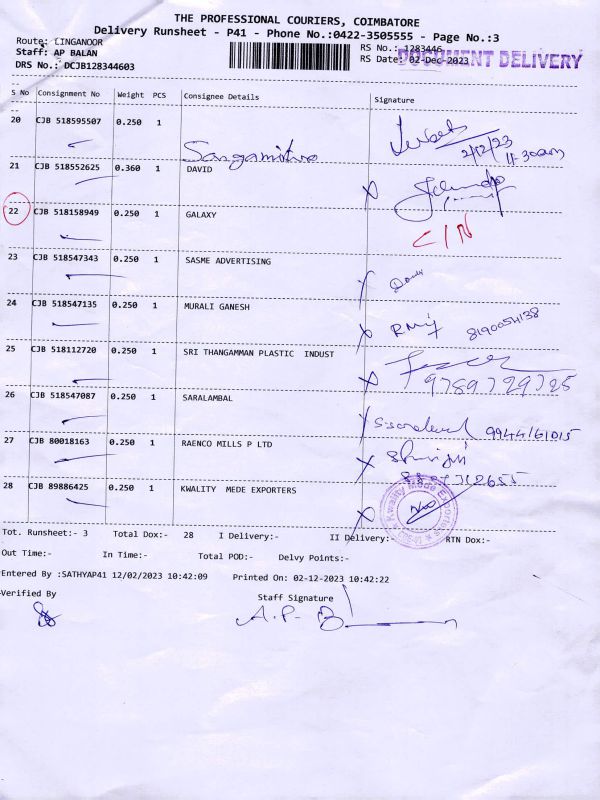 THE PROFESSIONAL COURIERS, COIMBATORE
Delivery Runsheet - P41 - Phone No.:0422-3505555 - Page No.:3
Route: LINGANOOR
RS No.: 1283446
Staff: AP BALAN
RS Date: 02-Dec-2023
DOCUMENT DELIVERY
DRS No.: DCJB128344603
S No Consignment No Weight PCS Consignee Details Signature
20 CJB 518595507 0.250 1
Sangamitra
2/12/23
11.30am
21 CJB 518552625 0.360 1 DAVID
X
22 CJB 518158949 0.250 1 GALAXY
C/N
23 CJB 518547343 0.250 1 SASME ADVERTISING
24 CJB 518547135 0.250 1 MURALI GANESH
X 8190054138
25 CJB 518112720 0.250 1 SRI THANGAMMAN PLASTIC INDUST
X 9789729725
26 CJB 518547087 0.250 1 SARALAMBAL
27 CJB 80018163 0.250 1 RAENCO MILLS P LTD
X
28 CJB 89886425 0.250 1 KWALITY MEDE EXPORTERS
X
Tot. Runsheet:- 3 Total Dox:- 28 I Delivery:- II Delivery:- RTN Dox:-
Out Time:- In Time:- Total POD:- Delvy Points:-
Entered By :SATHYAP41 12/02/2023 10:42:09 Printed On: 02-12-2023 10:42:22
Verified By Staff Signature
A.P. B